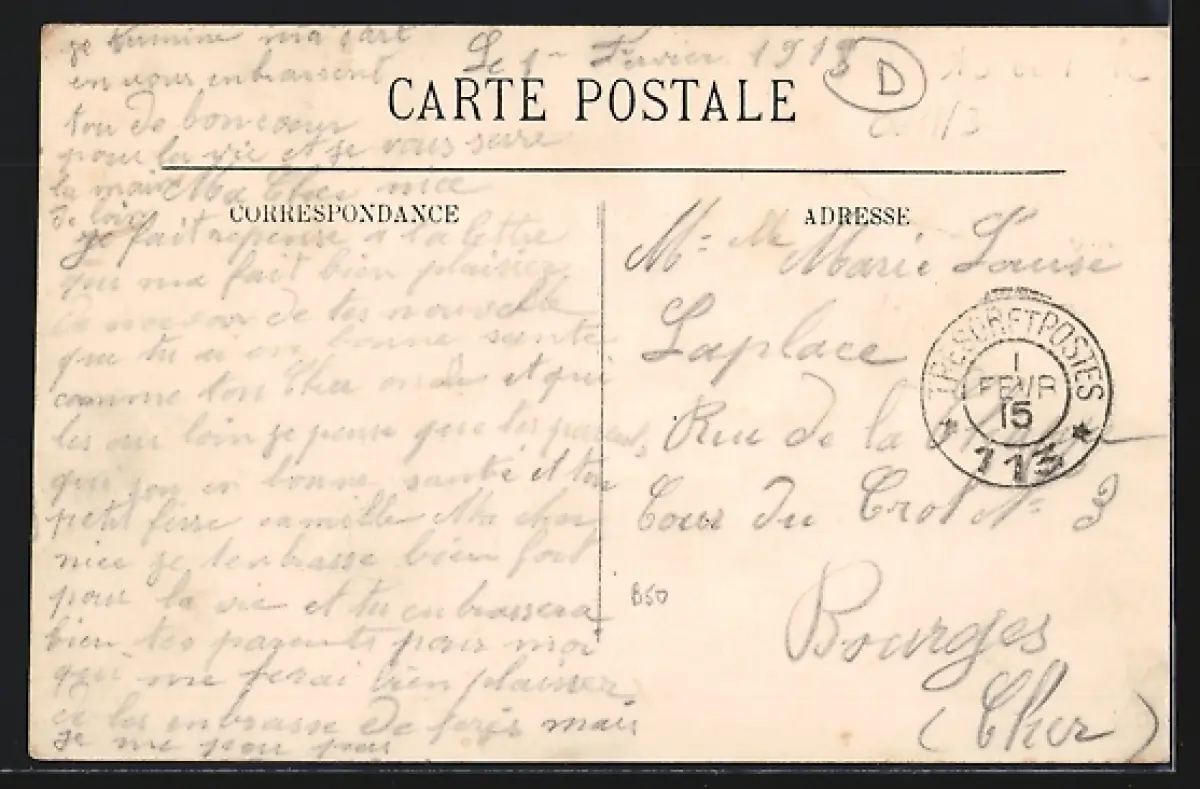 Le 1er Fevrier 1915
D
CARTE POSTALE
CORRESPONDANCE
Ma Cher nice
je fait reponse a ta lettre
qui ma fait bien plaisir
de recevoir de tes nouvelle
que tu ai en bonne santé
comme ton Cher oncle et qui
les au loin je pense que tes parents
qui son en bonne santé et ton
petit frere camille Ma cher
nice je tenbrasse bien fort
pour la vie et tu enbrassera
bien tes parents pour moi
qui me ferai bien plaisir
de les enbrasse de force mais
je me peu pas
je termine ma cart
en vous enbrassent
tou de bon coeur
pour la vie et je vous serre
la main
de loin
ADRESSE
Mlle Marie Louise
Laplace
Rue de la
Cour du Crot No 3
Bourges
(Cher)
TRESOR ET POSTES
1
FEVR
15
* 113 *
B50